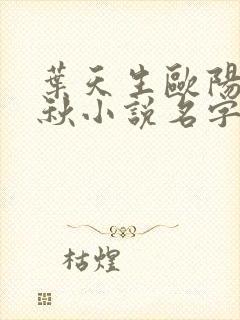 葉天生歐陽
秋小說名字
枯煌